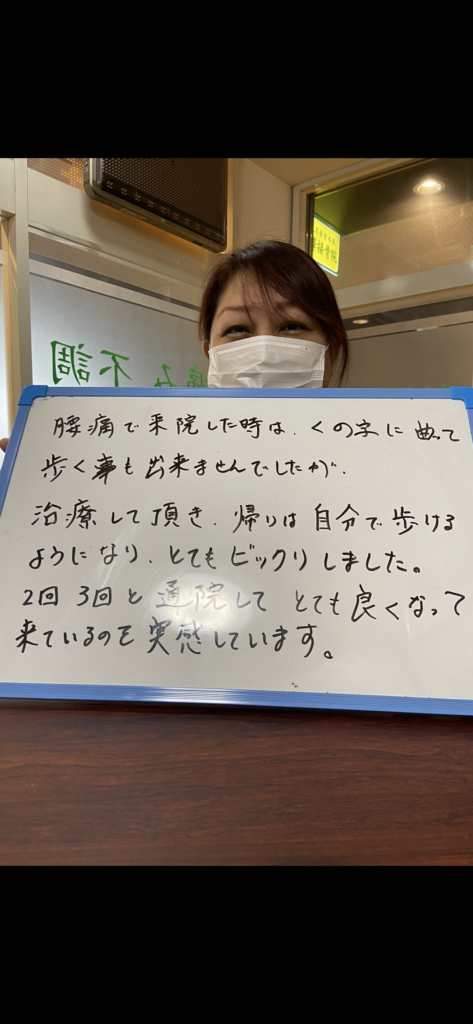 接骨院
不調
み
腰痛で来院した時は、くの字に曲って
歩く事も出来ませんでしたが、
治療して頂き、帰りは自分で歩ける
ようになり、とてもビックリしました。
2回 3回と通院して とても良くなって
来ているのを実感しています。